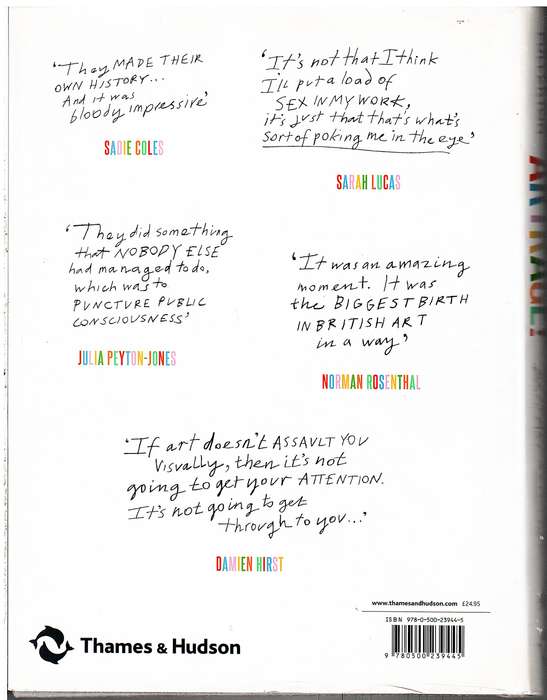 ‘They MADE THEIR
OWN HISTORY...
And it was
bloody impressive’
SADIE COLES
‘It's not that I think
I'll put a load of
SEX IN MY WORK,
it's just that that's what's
sort of poking me in the eye’
SARAH LUCAS
‘They did something
that NOBODY ELSE
had managed to do,
which was to
PUNCTURE PUBLIC
CONSCIOUSNESS’
JULIA PEYTON-JONES
‘It was an amazing
moment. It was
the BIGGEST BIRTH
IN BRITISH ART
in a way’
NORMAN ROSENTHAL
‘If art doesn't ASSAULT YOU
Visually, then it's not
going to get your ATTENTION.
It's not going to get
through to you...’
DAMIEN HIRST
www.thamesandhudson.com £24.95
ISBN 978-0-500-23944-5
9 780500 239445
Thames & Hudson
ARTRAGE!